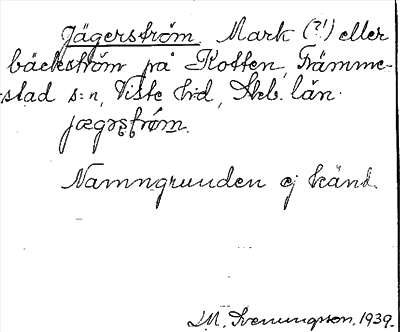 Jägerström, Mark (?!) eller
bäckström på Kotten, Främme-
stad s:n, Viste h:d, Skb. län.
jægəʂtrǿm.
Namngrunden ej känd.
M. Svenungsson. 1939.